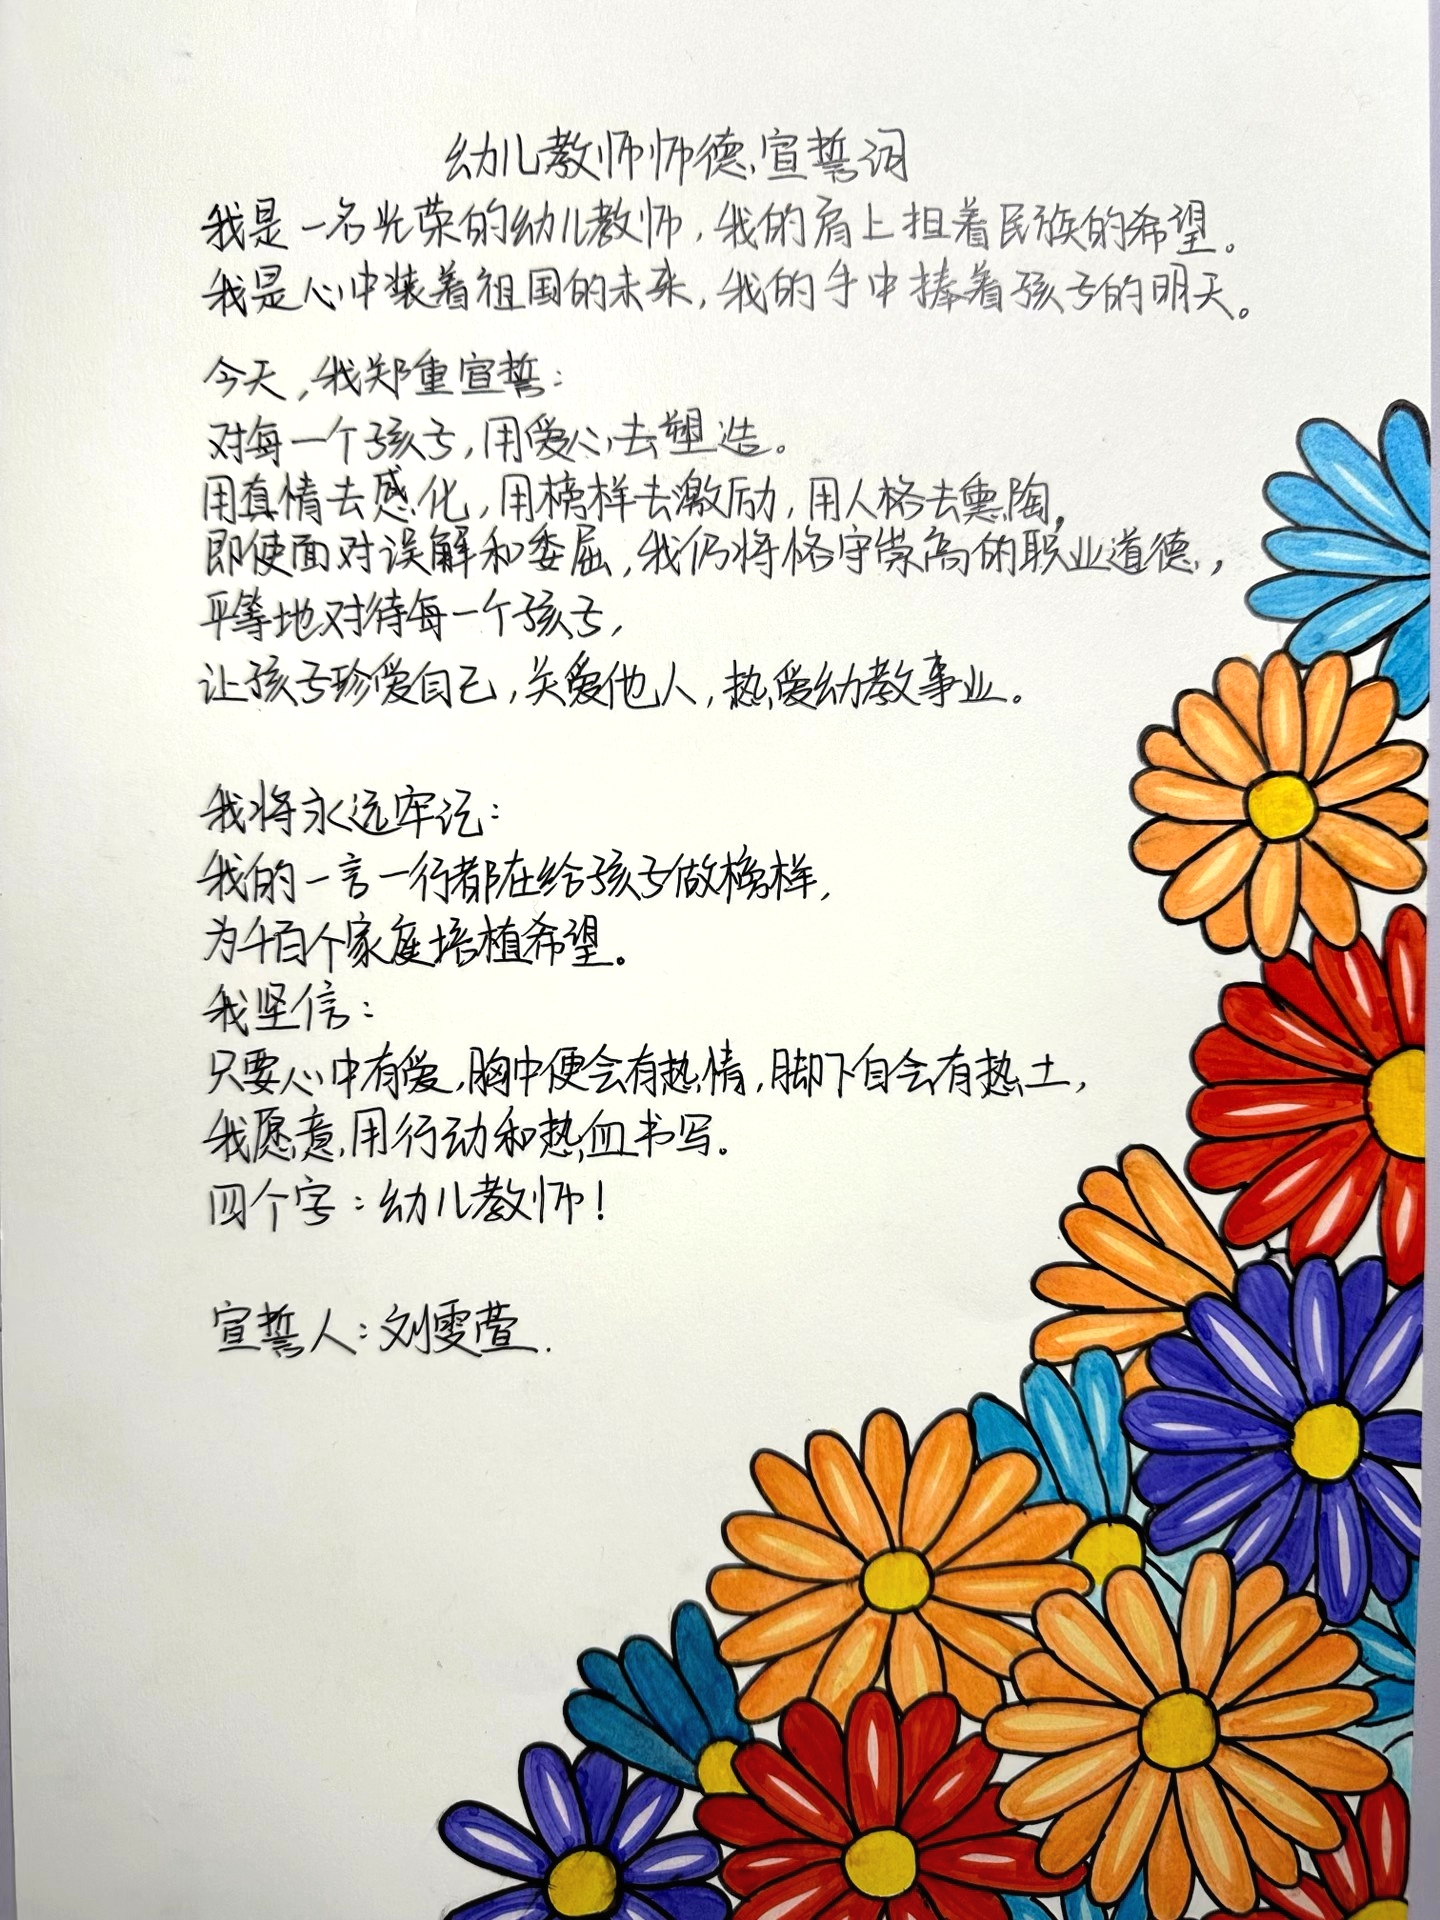 幼儿教师师德宣誓词
我是一名光荣的幼儿教师,我的肩上担着民族的希望。
我是心中装着祖国的未来,我的手中捧着孩子的明天。
今天,我郑重宣誓:
对每一个孩子,用爱心去塑造。
用真情去感化,用榜样去激励,用人格去熏陶,
即使面对误解和委屈,我仍将恪守崇高的职业道德,
平等地对待每一个孩子,
让孩子珍爱自己,关爱他人,热爱幼教事业。
我将永远牢记:
我的一言一行都在给孩子做榜样,
为千百个家庭培植希望。
我坚信:
只要心中有爱,胸中便会有热情,脚下自会有热土,
我愿意用行动和热血书写。
四个字:幼儿教师!
宣誓人:刘雯萱.